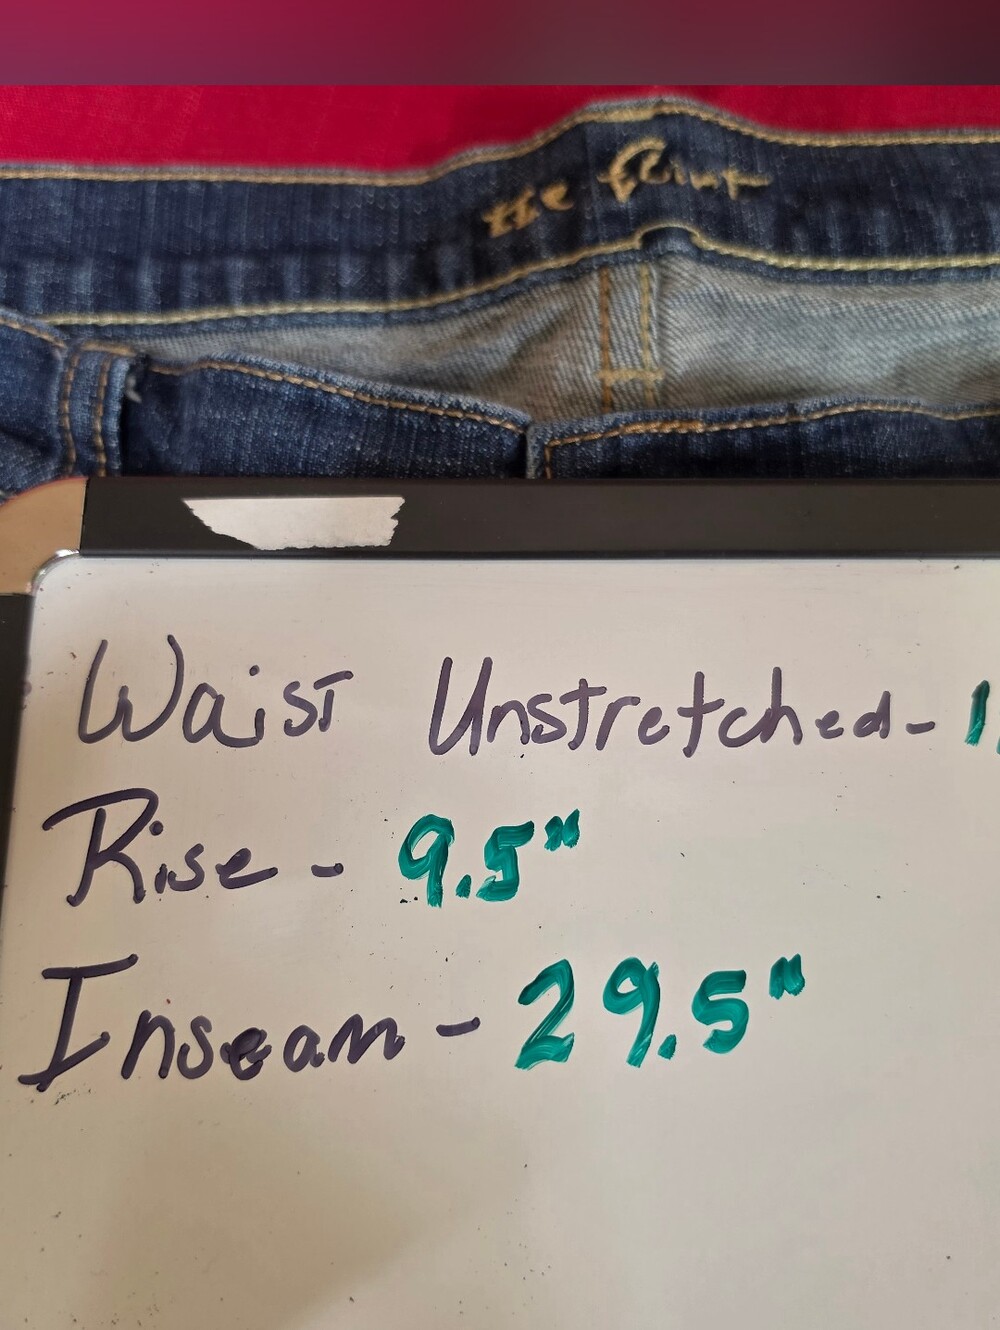 the flirt
Waist Unstretched- 1
Rise - 9.5"
Inseam - 29.5"